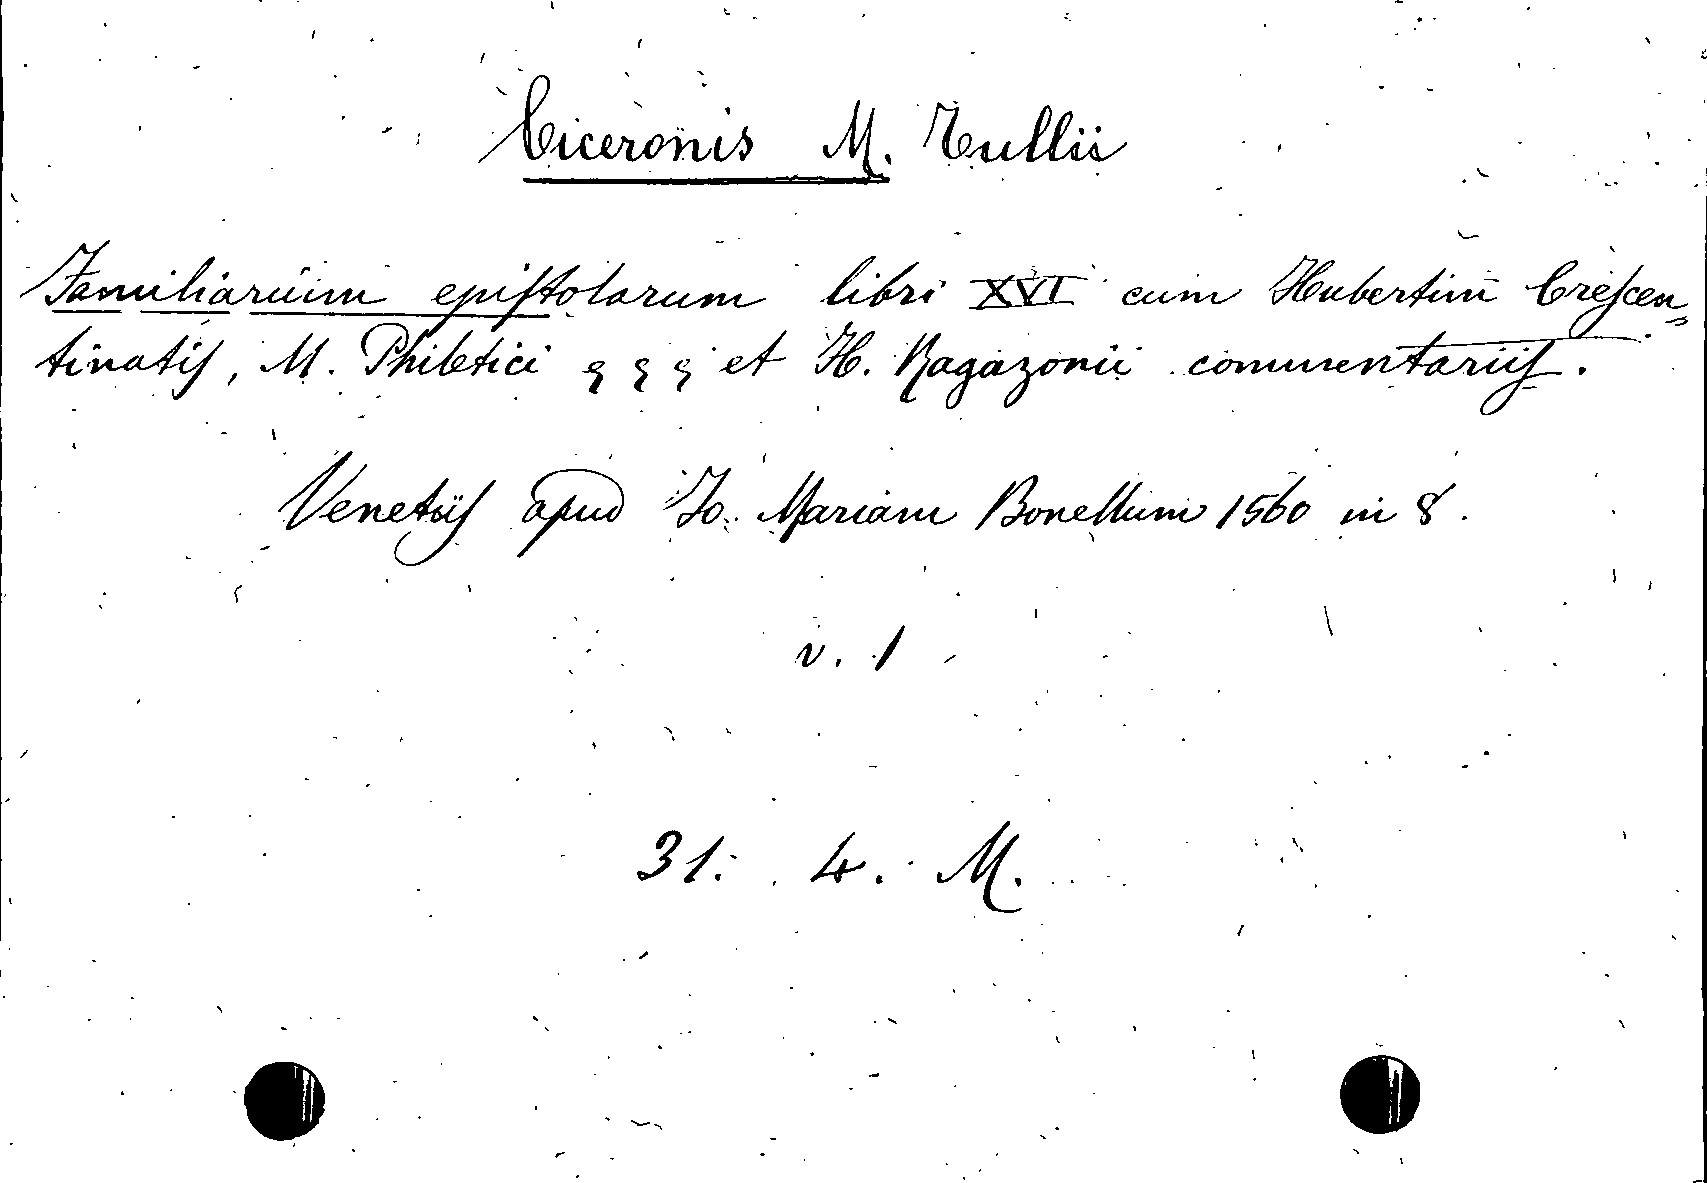 Ciceronis M. Tullii
Familiarum epistolarum libri XVI cum Hubertini Crescen=
tinatis, M. Philetici & & & et H. Ragazonii commentariis.
Venetiis apud Jo. Mariam Bonellum 1560 in 8.
v. 1
31. 4. M.